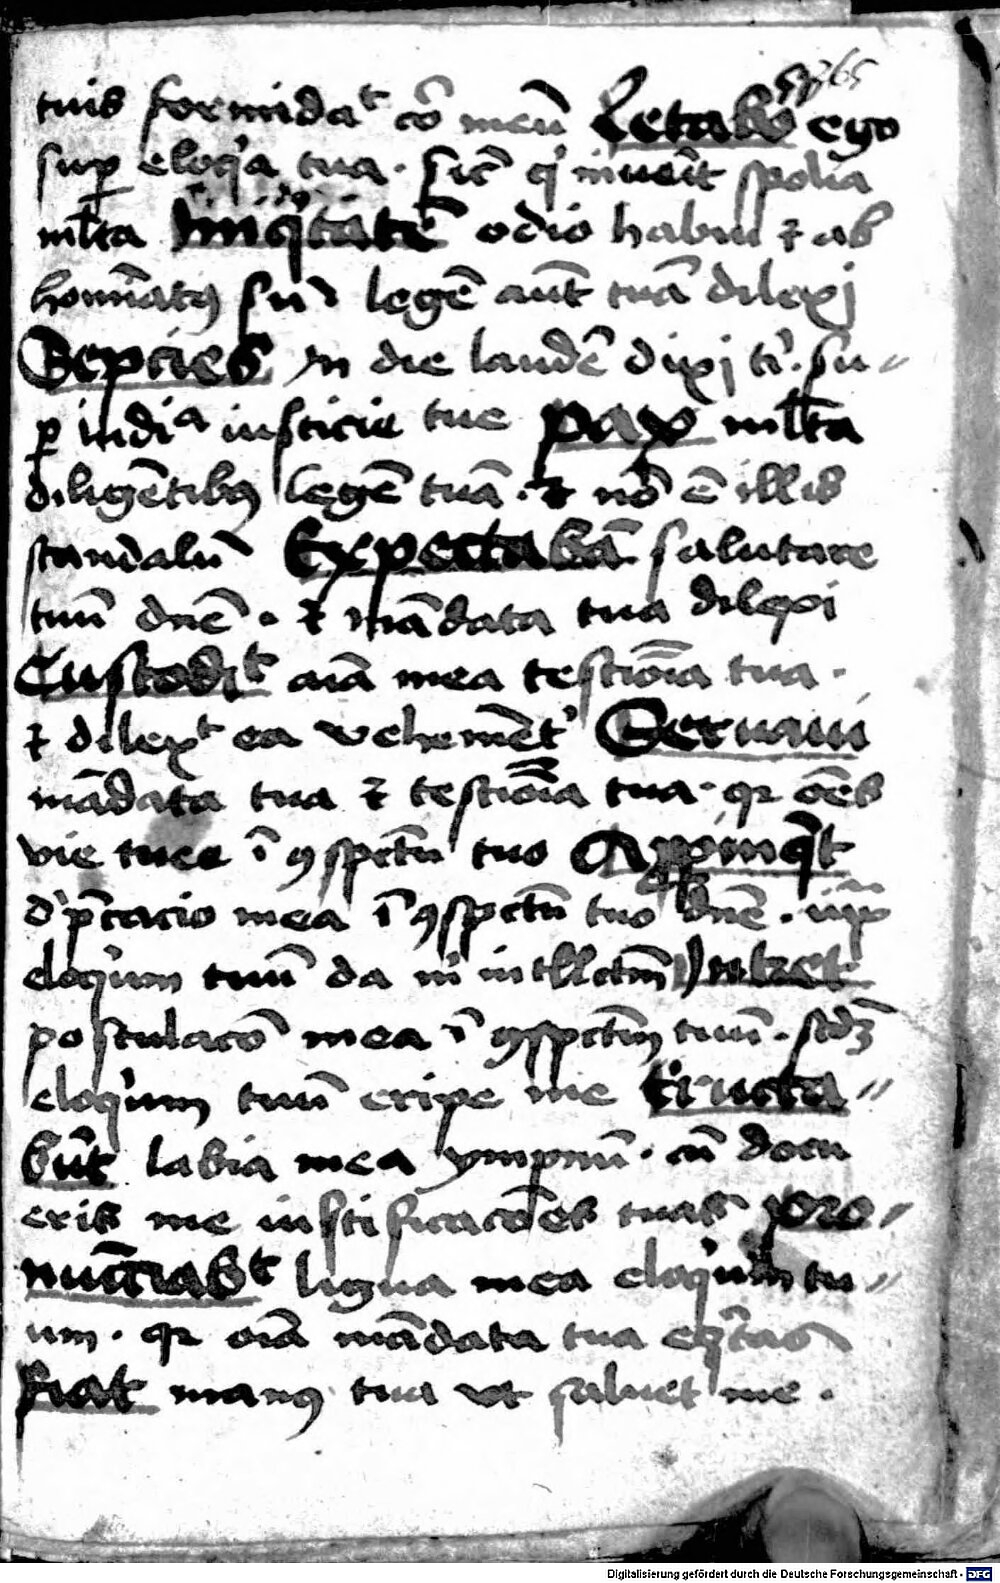 tuis formidat cor̄ meū Letabor ego
sup eloq̓a tua · sic̄ q̓ inuenit spolia
ml̄ta Iniq̓tatē odio habui ⁊ ab
hominatꝯ sū legē aūt tuā dilexj
Sepcies In die laudē dixj ti᷑ · su〃
ꝑ iudiᵃ iusticie tue pax ml̄ta
diligētibꝯ legē tuā · ⁊ nō ē illis
scandalū Expectabā salutare
tuū dn̄e · ⁊ mādata tua dilexi
Custodiᵗ aīa mea testiōīa tua ·
⁊ dilexᵗ ea vehemēt᷑ Seruaui
mādata tua ⁊ testiōīa tua · qꝛ oēs
vie tuee ī ꝯspc̄tu tuo App̄inq̄t
d᷑p̄cacio mea ī ꝯspc̄tu tuo dn̄e · iux̄
eloq̓um tuū da m̓ intll̄ctm̄ Intret
postulacō mea ī ꝯspc̄tu tuū · scd̄ꝫ
eloq̓um tuū eripe me Eructa〃
būt labia mea ympnū · cū docu
eris me iustificacōes tuas pro〃
nūciabᵗ ligua mea eloq̓um tu〃
um · qꝛ oīa mādata tua eq̓tas
Fiat manꝯ tua vt saluet me ·
Digitalisierung gefördert durch die Deutsche Forschungsgemeinschaft - DFG